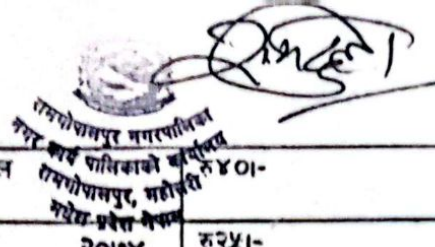 रामगोपालपुर नगरपालिका
नगर कार्य पालिकाको कार्यालय
रामगोपालपुर, महोत्तरी
मधेश प्रदेश नेपाल
रु४०।-
रु२५।-